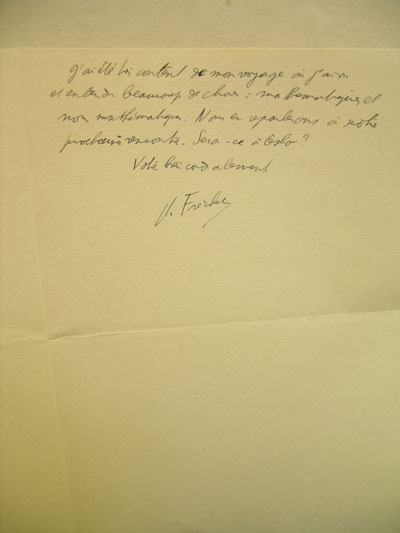 J'ai été très content de mon voyage où j'ai vu
et entendu beaucoup de choses : mathématiques et
non mathématiques. Nous en reparlerons à notre
prochaine rencontre. Sera-ce à Oslo ?
Votre très cordialement